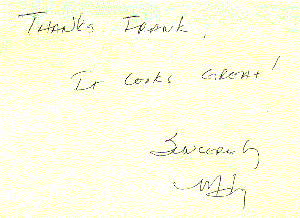 Thanks Frank,
It looks great!
Sincerely